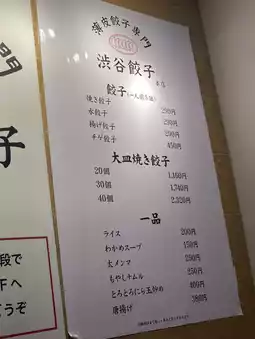 薄皮餃子専門
渋谷餃子
本店
餃子(一人前6個)
焼き餃子 290円
水餃子 290円
揚げ餃子 290円
チゲ餃子 450円
大皿焼き餃子
20個 1,160円
30個 1,740円
40個 2,320円
一品
ライス 200円
わかめスープ 150円
太メンマ 250円
もやしナムル 250円
とろとろにら玉炒め 400円
唐揚げ 380円
門
子
段で
Fへ
うぞ